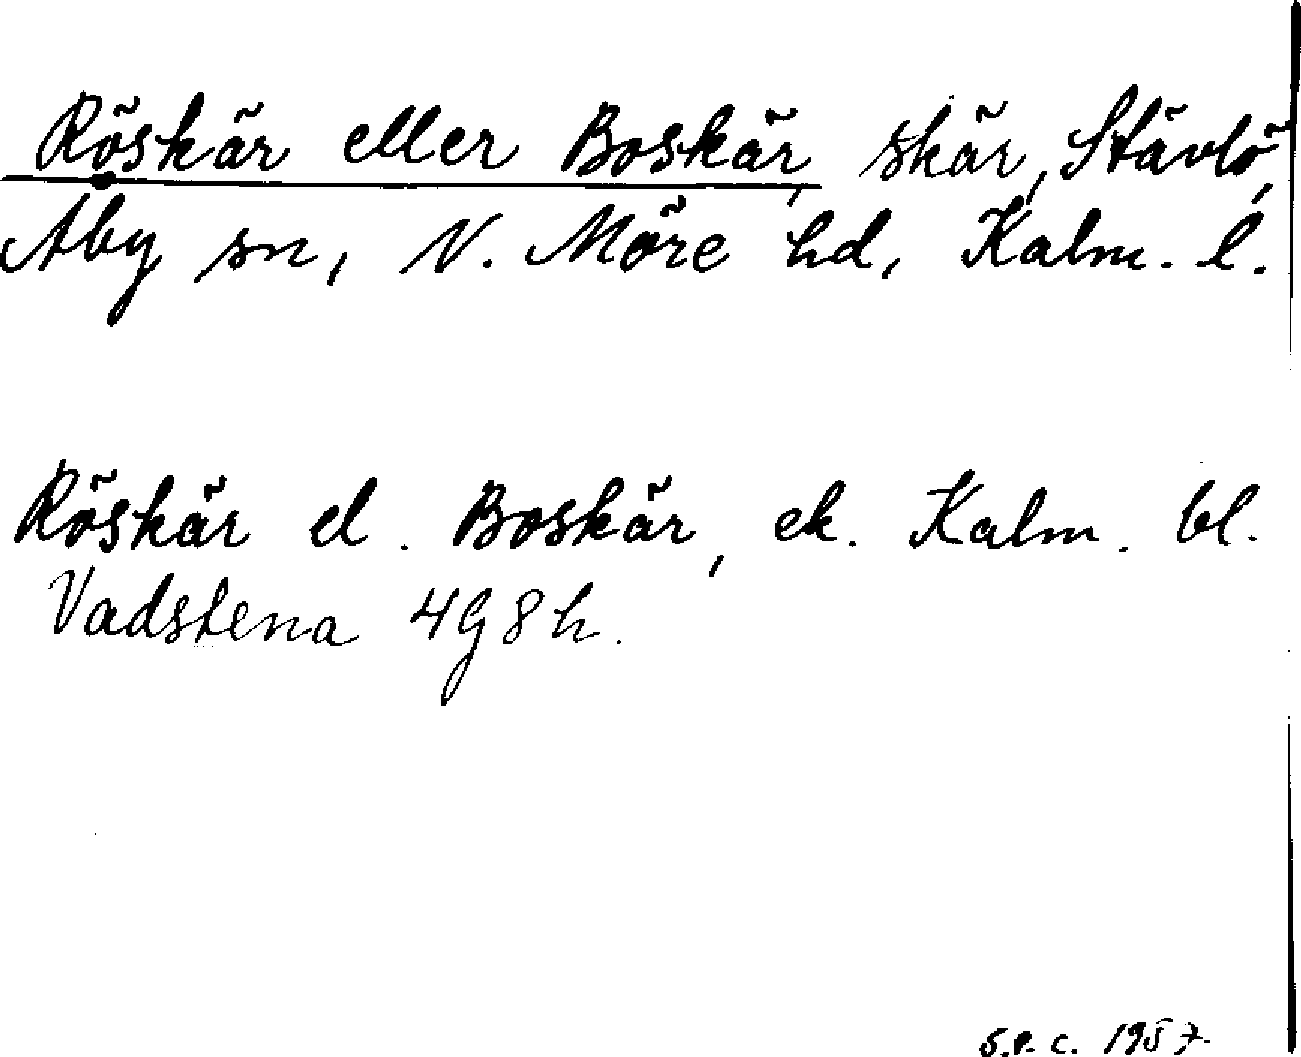 Röskär eller Boskär, skär, Stävlö,
Åby sn, N. Möre hd, Kalm. l.
Röskär el. Boskär, ek. Kalm. bl.
Vadstena 4g8h.
S.P.C. 1957.